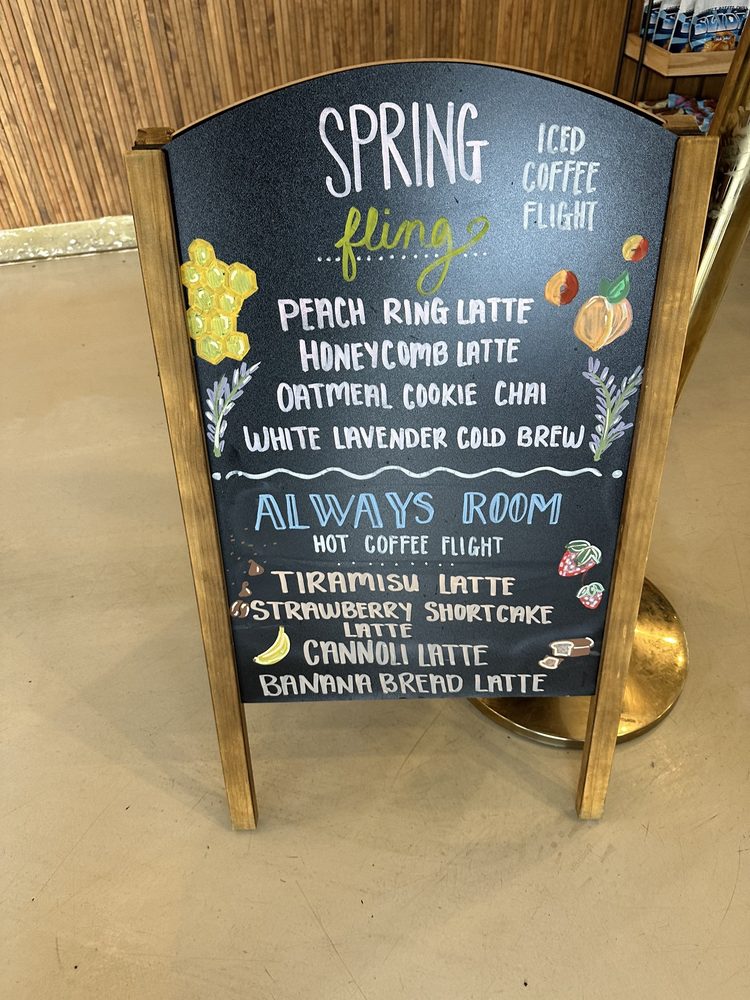 SPRING
fling
ICED
COFFEE
FLIGHT
PEACH RING LATTE
HONEYCOMB LATTE
OATMEAL COOKIE CHAI
WHITE LAVENDER COLD BREW
ALWAYS ROOM
HOT COFFEE FLIGHT
TIRAMISU LATTE
STRAWBERRY SHORTCAKE
LATTE
CANNOLI LATTE
BANANA BREAD LATTE